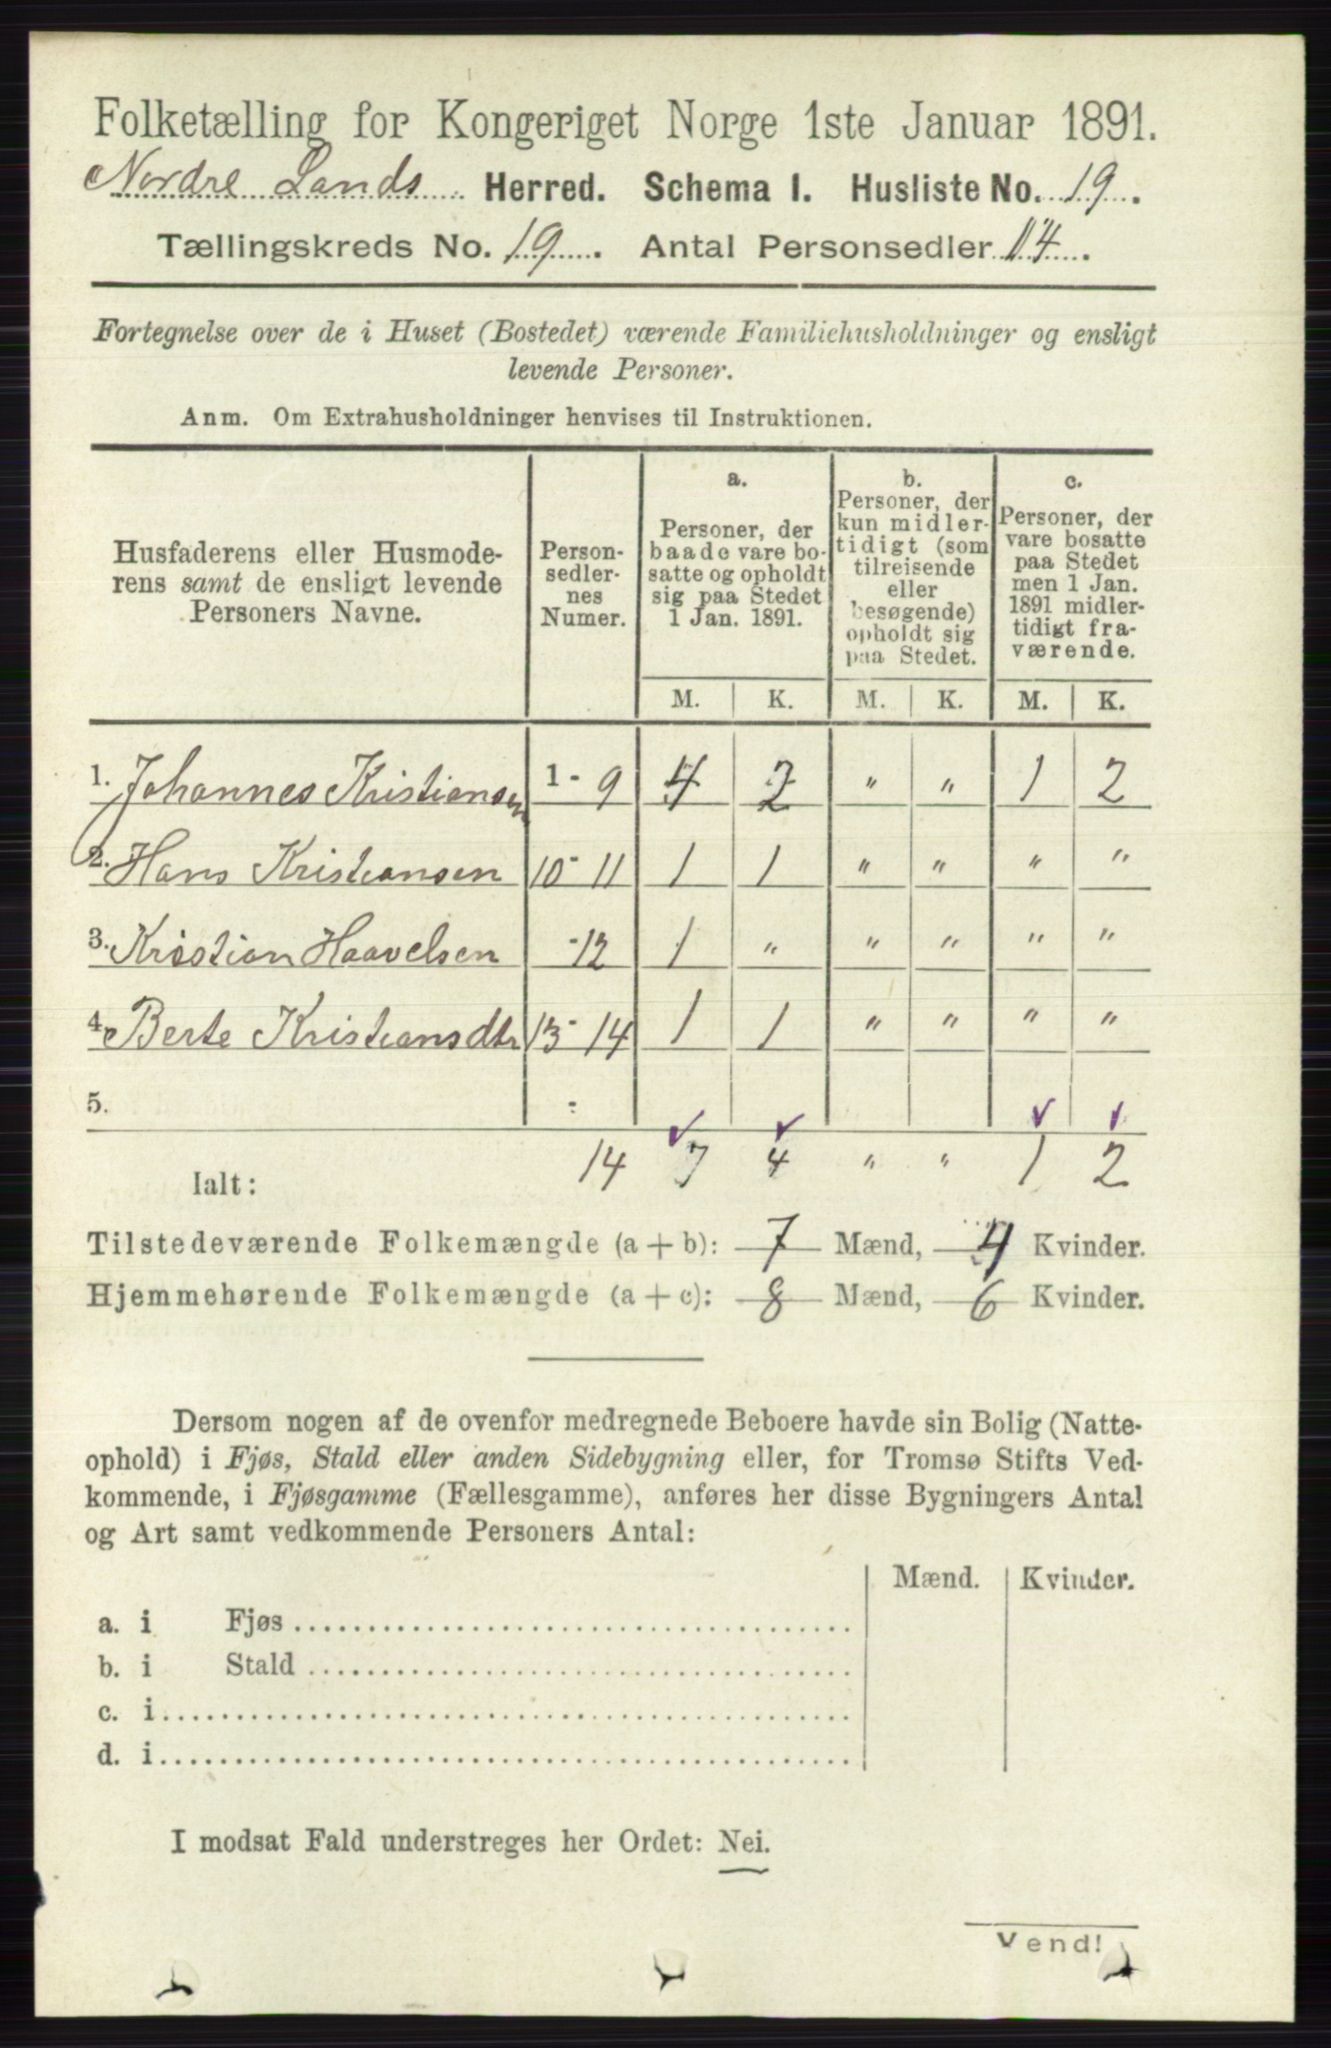 Folketælling for Kongeriget Norge 1ste Januar 1891.
Nordre Lands Herred. Schema I. Husliste No. 19.
Tællingskreds No. 19. Antal Personsedler 14.
Fortegnelse over de i Huset (Bostedet) værende Familiehusholdninger og ensligt
levende Personer.
Anm. Om Extrahusholdninger henvises til Instruktionen.
Husfaderens eller Husmode-
rens samt de ensligt levende
Personers Navne.
Person-
sedler-
nes
Numer.
a.
Personer, der
baade vare bo-
satte og opholdt
sig paa Stedet
1 Jan. 1891.
b.
Personer, der
kun midler-
tidigt (som
tilreisende
eller
besøgende)
opholdt sig
paa Stedet.
c.
Personer, der
vare bosatte
paa Stedet
men 1 Jan.
1891 midler-
tidigt fra-
værende.
M. K. M. K. M. K.
1. Johannes Kristiansen 1 - 9 4 2 " " 1 2
2. Hans Kristiansen 10 - 11 1 1 " " " "
3. Kristian Haavelsen - 12 1 " " " " "
4. Berte Kristiansdtr 13 - 14 1 1 " " " "
5. -
Ialt: 14 7 4 " " 1 2
Tilstedeværende Folkemængde (a + b): 7 Mænd, 4 Kvinder.
Hjemmehørende Folkemængde (a + c): 8 Mænd, 6 Kvinder.
Dersom nogen af de ovenfor medregnede Beboere havde sin Bolig (Natte-
ophold) i Fjøs, Stald eller anden Sidebygning eller, for Tromsø Stifts Ved-
kommende, i Fjøsgamme (Fællesgamme), anføres her disse Bygningers Antal
og Art samt vedkommende Personers Antal:
Mænd. Kvinder.
a. i Fjøs
b. i Stald
c. i
d. i
I modsat Fald understreges her Ordet: Nei.
Vend!